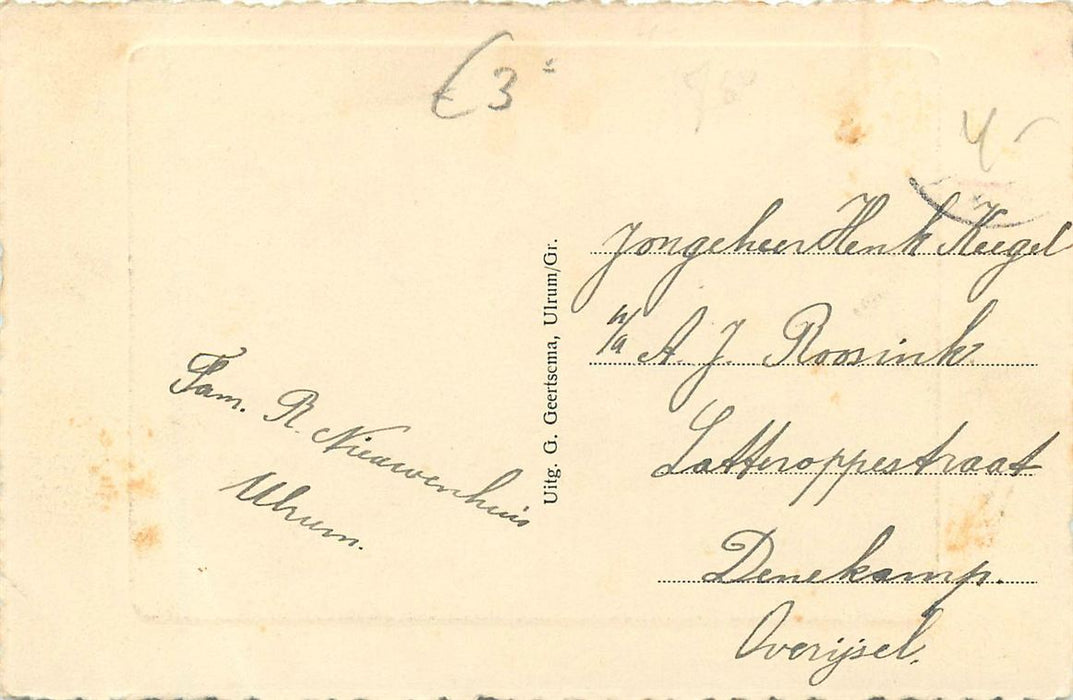 € 3
Fam. R. Nieuwenhuis
Ulrum.
Uitg. G. Geertsema, Ulrum/Gr.
Jongeheer Henk Kiegel
p/a A. J. Roosink
Latteroppestraat
Denekamp.
Overijsel.